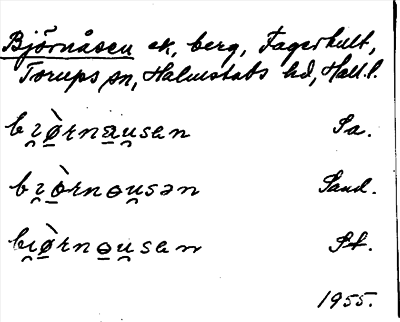 Björnåsen ek, berg, Fagerhult,
Torups sn, Halmstads hd, Hall.l.
bı̯ø̀rna̲u̯sen Sa.
bı̯ò̲rnɵu̯sən Sand.
bı̯ø̀rnɵ̲u̯sen St.
1955.